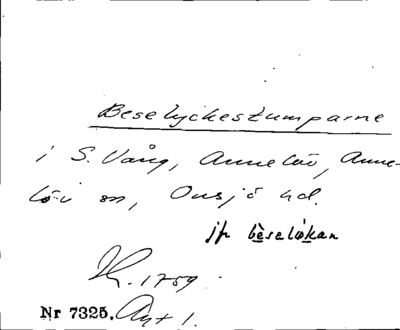 Beselyckestumparne
i S. Vång, Annelöv, Anne-
lövs sn, Onsjö hd.
jfr bèselø̀kan
K. 1759.
Nr 7325. Avt 1.